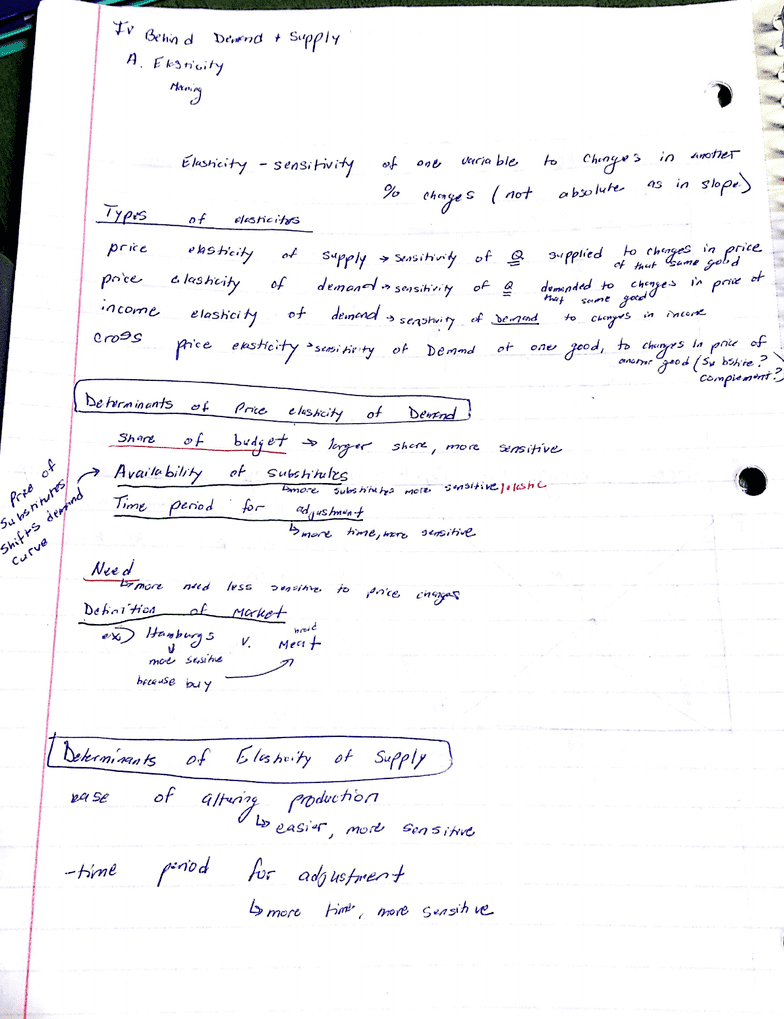 IV Behind Demand + Supply
A. Elasticity
Meaning
Elasticity - sensitivity of one variable to changes in another
% changes (not absolute as in slope)
Types of elasticites
price elasticity of supply → sensitivity of Q supplied to changes in price
of that same good
price elasticity of demand → sensitivity of Q demanded to changes in price of
that same good
income elasticity of demand → senstivity of Demand to changes in income
cross price elasticity → sensitivity of Demand of one good, to changes in price of
another good (Substitute?
complement?)
Determinants of Price elasticity of Demand
Share of budget → larger share, more sensitive
Availability of substitutes
↳ more substitutes more sensitive/elastic
Time period for adjustment
↳ more time, more sensitive
Price of
substitutes
shifts demand
curve
Need
↳ more need less sensitive to price changes
Definition of Market
ex) Hamburgs v. Meat
broad
more sensitive
because buy
Determinants of Elasticity of Supply
ease of altering production
↳ easier, more sensitive
-time period for adjustment
↳ more time, more sensitive